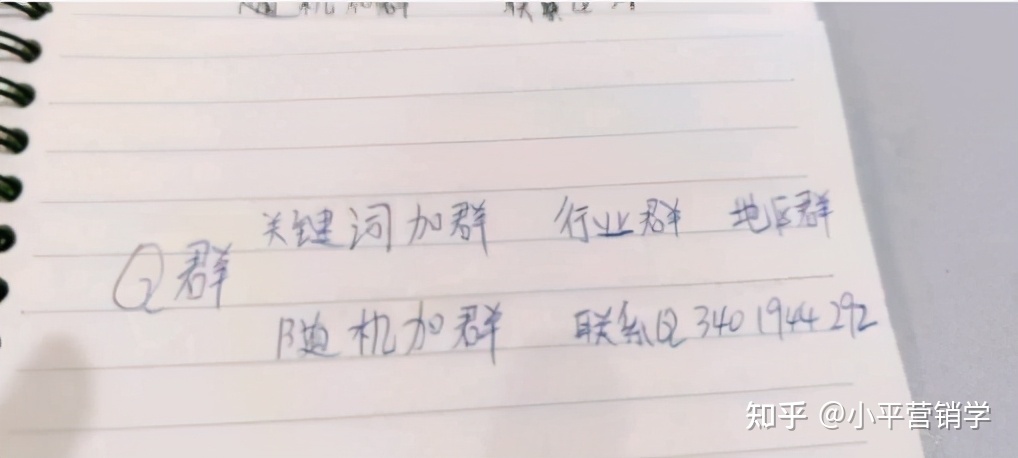 随机加群 联系Q
关键词加群 行业群 地区群
Q群
随机加群 联系Q 3401944292
知乎 @小平营销学